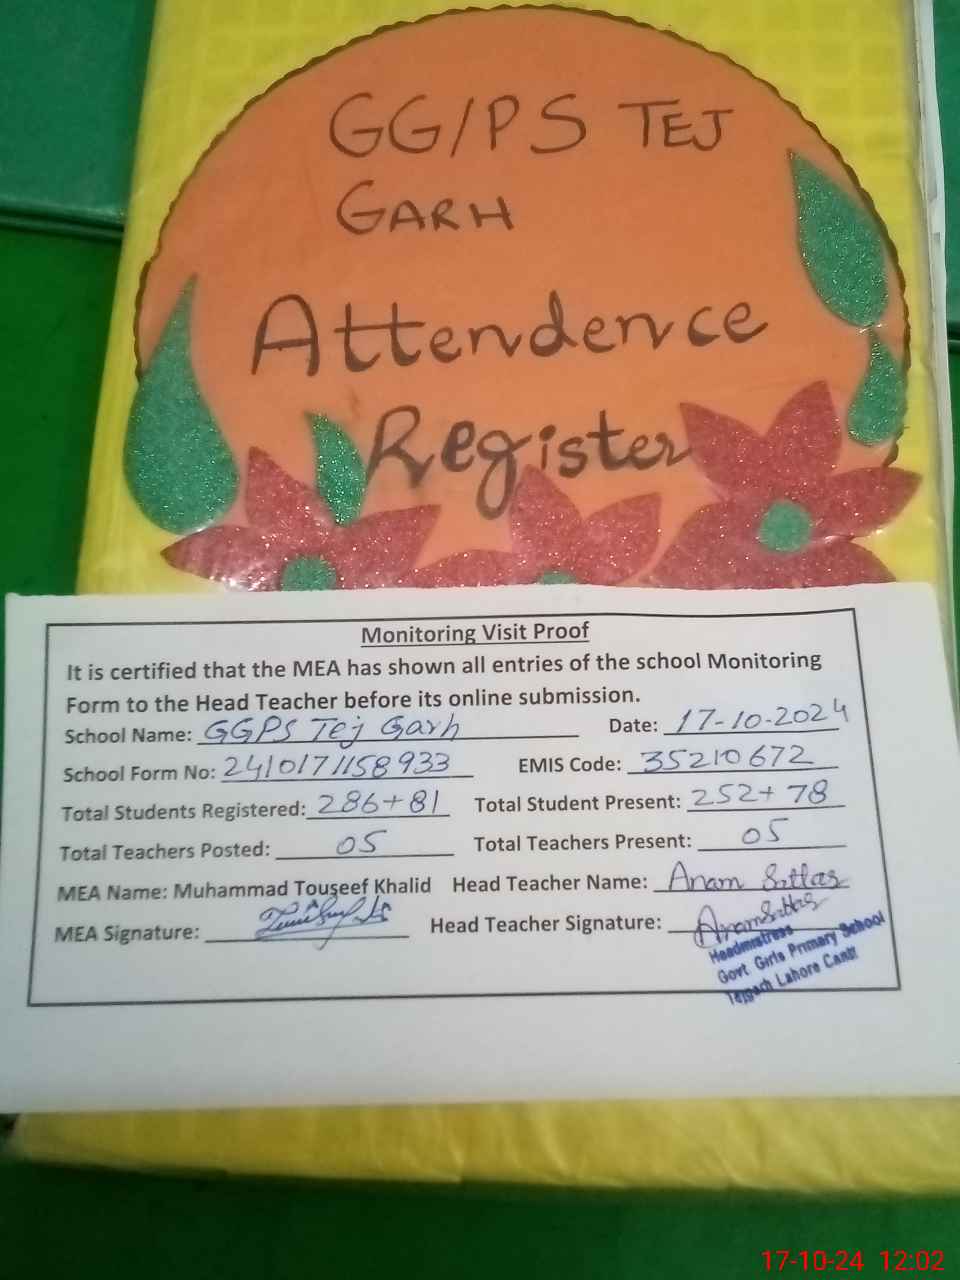 GG/PS TEJ
GARH
Attendence
Register
Monitoring Visit Proof
It is certified that the MEA has shown all entries of the school Monitoring
Form to the Head Teacher before its online submission.
School Name: GGPS Tej Garh Date: 17-10-2024
School Form No: 2410171158933 EMIS Code: 35210672
Total Students Registered: 286+81 Total Student Present: 252+78
Total Teachers Posted: 05 Total Teachers Present: 05
MEA Name: Muhammad Touseef Khalid Head Teacher Name: Anam Sattar
MEA Signature: Head Teacher Signature: Anam Sattar
Headmistress
Govt Girls Primary School
Tejgarh Lahore Cantt
17-10-24 12:02